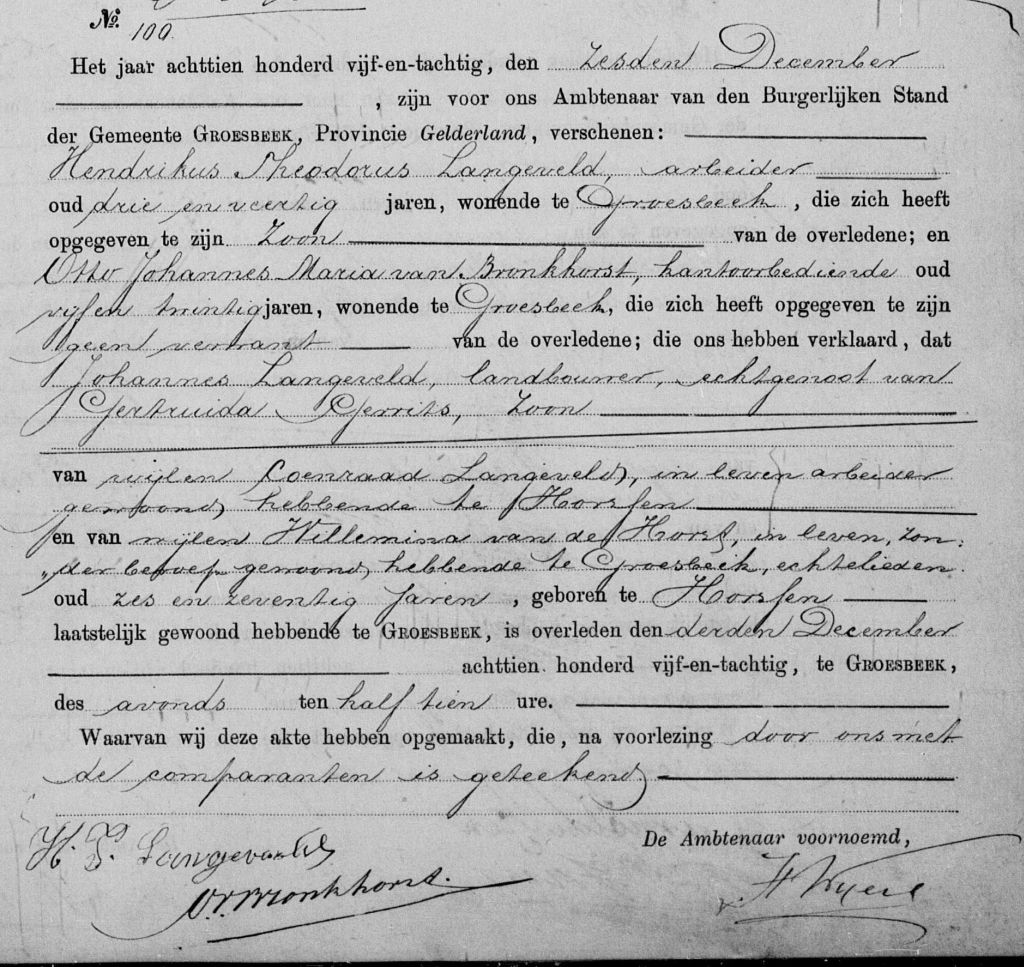 No. 100.
Het jaar achttien honderd vijf-en-tachtig, den zesden December
, zijn voor ons Ambtenaar van den Burgerlijken Stand
der Gemeente GROESBEEK, Provincie Gelderland, verschenen:
Hendrikus Theodorus Langeveld, arbeider
oud drie en veertig jaren, wonende te Groesbeek, die zich heeft
opgegeven te zijn zoon van de overledene; en
Otto Johannes Maria van Bronkhorst, kantoorbediende oud
vijf en twintig jaren, wonende te Groesbeek, die zich heeft opgegeven te zijn
geen verwant van de overledene; die ons hebben verklaard, dat
Johannes Langeveld, landbouwer, echtgenoot van
Gertruida Gerrits, zoon
van wijlen Coenraad Langeveld, in leven arbeider
gewoond hebbende te Horssen
en van wijlen Willemina van de Horst, in leven, zon:
„der beroep gewoond hebbende te Groesbeek, echtelieden.
oud zes en zeventig jaren, geboren te Horssen
laatstelijk gewoond hebbende te GROESBEEK, is overleden den derden December
achttien honderd vijf-en-tachtig, te GROESBEEK,
des avonds ten half tien ure.
Waarvan wij deze akte hebben opgemaakt, die, na voorlezing door ons met
de comparanten is geteekend
De Ambtenaar voornoemd,
H. T. Langeveld
O.v.Bronkhorst.